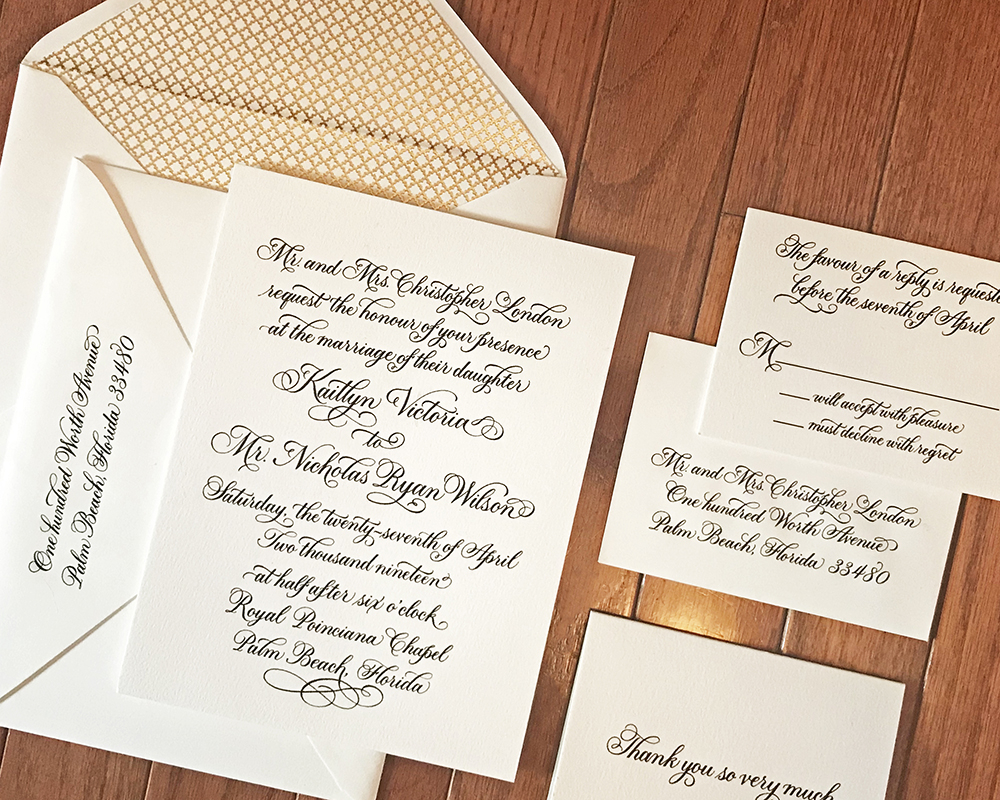 One hundred Worth Avenue
Palm Beach, Florida 33480
Mr. and Mrs. Christopher London
request the honour of your presence
at the marriage of their daughter
Kaitlyn Victoria
to
Mr. Nicholas Ryan Wilson
Saturday, the twenty-seventh of April
Two thousand nineteen
at half after six o'clock
Royal Poinciana Chapel
Palm Beach, Florida
The favour of a reply is requeste
before the seventh of April
M
will accept with pleasure
must decline with regret
Mr. and Mrs. Christopher London
One hundred Worth Avenue
Palm Beach, Florida 33480
Thank you so very much